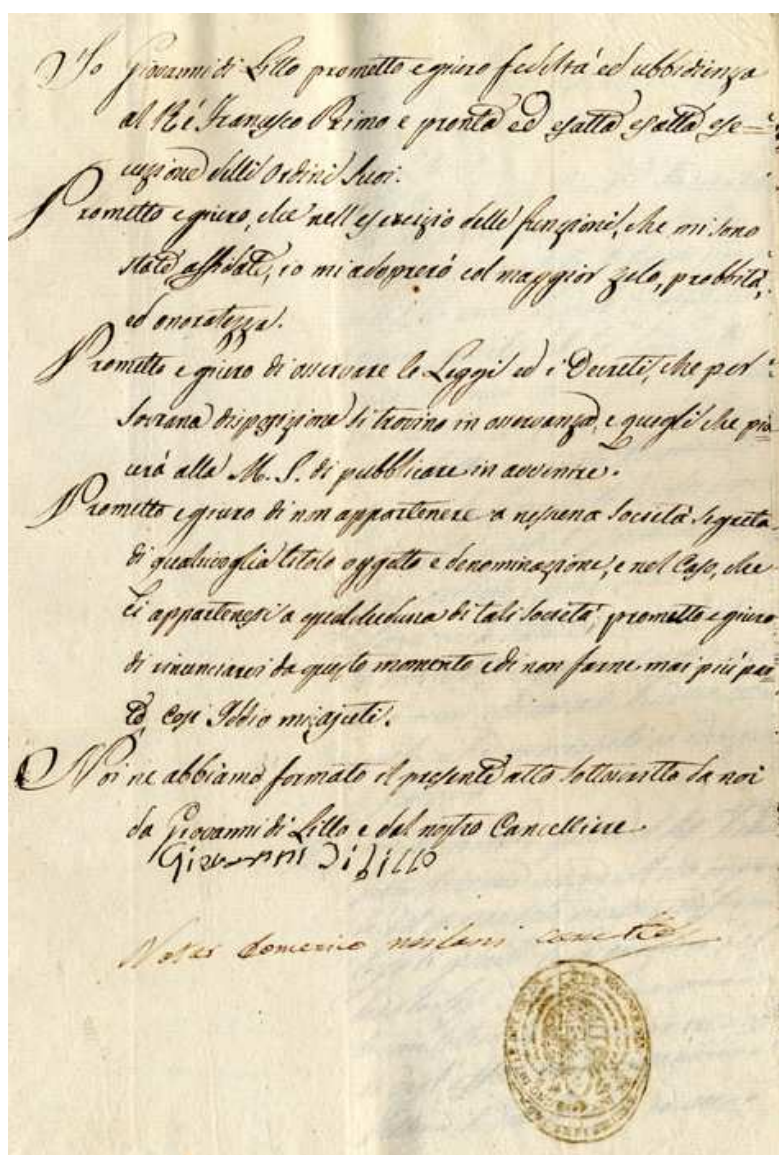 Io Giovanni di Lillo prometto e giuro fedeltà ed ubbidienza
al Ré Francesco Primo e pronta ed esatta esatta ese=
cuzione delli Ordini Suoi.
Prometto e giuro, che nell'esercizio delle funzioni, che mi sono
state affidate, io mi adoprerò col maggior zelo, probbità,
ed onoratezza.
Prometto e giuro di osservare le Leggi ed i Decreti, che per
Sovrana disposizione si trovino in osservanza, e quegli che pia=
cerà alla M. S. di pubblicare in avvenire.
Prometto e giuro di non appartenere a nessuna Società Segreta
di qualsivoglia titolo oggetto e denominazione, e nel Caso, che
ci appartenessi a qualcheduna di tali Società, prometto e giuro
di rinunciarci da questo momento e di non farne mai più par=
te, così Iddio mi ajuti.
Noi ne abbiamo formato il presente atto sottoscritto da noi
da Giovanni di Lillo e dal nostro Cancelliere
Giovanni Di Lillo
Notar Domenico